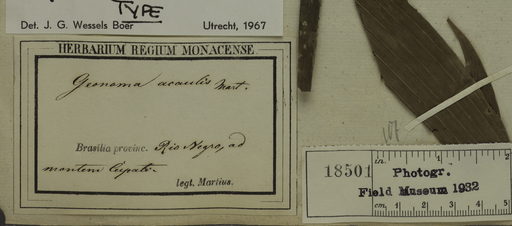 TYPE
Det. J. G. Wessels Boer Utrecht, 1967
HERBARIUM REGIUM MONACENSE.
Geonoma acaulis Mart.
Brasilia provinc. Rio Negro, ad
montem Cupati.
legt. Martius.
107
18501
in. 1 2
Photogr.
Field Museum 1932
cm. 1 2 3 4 5